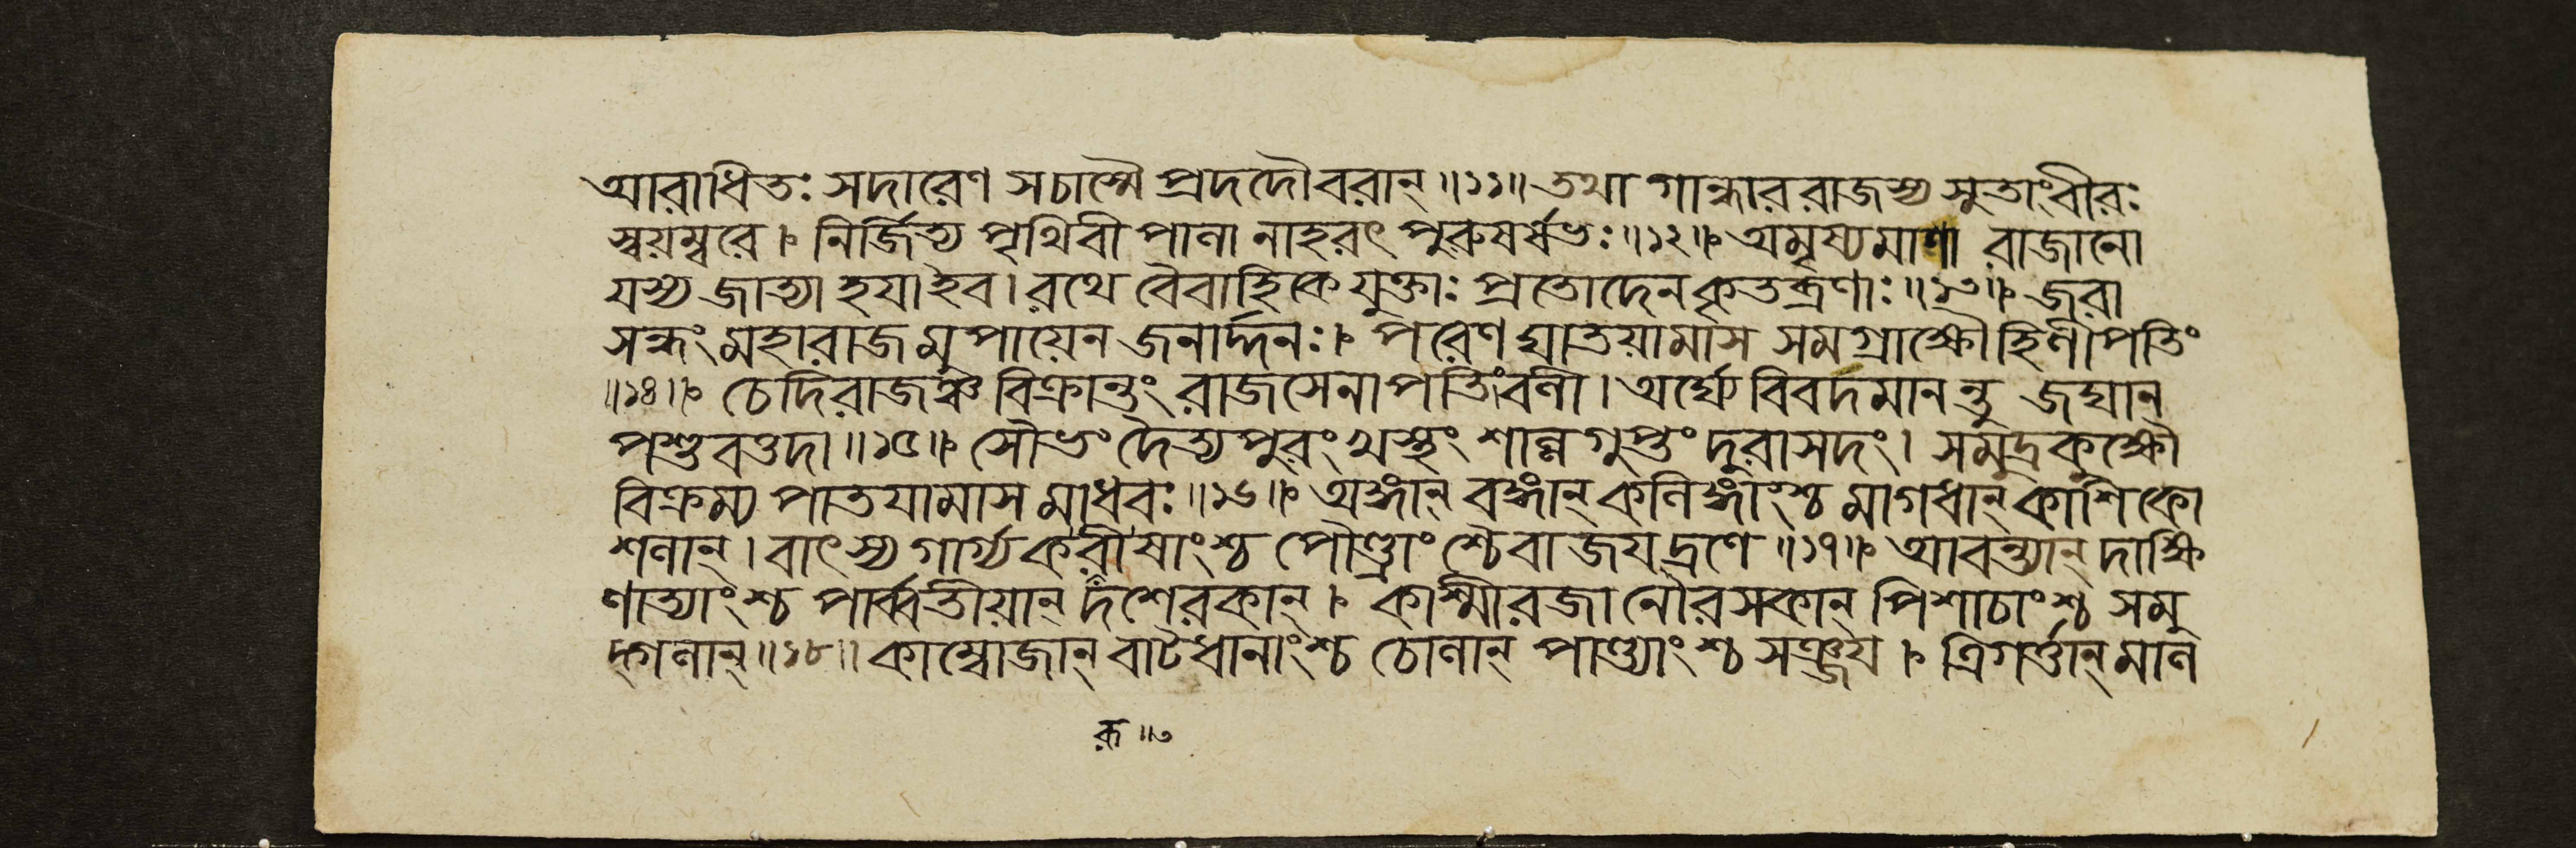 আরাধিতঃ সদারেণ সচাস্মৈ প্রদদৌ বরান্ ॥১১॥ তথা গান্ধাররাজস্য সুতাং বীরঃ
স্বয়ম্বরে । নির্জিত্য পৃথিবীপানা নাহরৎ পুরুষর্ষভঃ ॥১২॥ অমৃষ্যমাণা রাজানো
যস্য জাত্যা হয়াইব । রথে বৈবাহিকে যুক্তাঃ প্রতোদেন কৃতব্রণাঃ ॥১৩॥ জরা
সন্ধং মহারাজমুপায়েন জনার্দ্দনঃ । পরেণ ঘাতয়ামাস সমগ্রাক্ষৌহিণীপতিং
॥১৪॥ চেদিরাজঞ্চ বিক্রান্তং রাজসেনাপতিংবলী । অর্ঘ্যে বিবদমানন্তু জঘান্
পশুবত্তদা ॥১৫॥ সৌভং দৈত্যপুরং খস্থং শাল্লগুপ্তং দুরাসদং । সমুদ্রকুক্ষৌ
বিক্রম্য পাতয়ামাস মাধবঃ ॥১৬॥ অঙ্গান্ বঙ্গান্ কলিঙ্গাংশ্চ মাগধান্ কাশিকো
শলান্ । বাৎস্যগার্গ্যকরীষাংশ্চ পৌণ্ড্রাংশ্চৈবাজয়দ্রণে ॥১৭॥ আবন্ত্যান্ দাক্ষি
ণাত্যাংশ্চ পার্ব্বতীয়ান্ দঁশেরকান্ । কাশ্মীরজানৌরসকান্ পিশাচাংশ্চ সমু
দ্গলান্ ॥১৮॥ কাম্বোজান্ বাটধানাংশ্চ চোলান্ পাণ্ড্যাংশ্চ সঞ্জয় । ত্রিগর্ত্তান্ মাল
॥৩